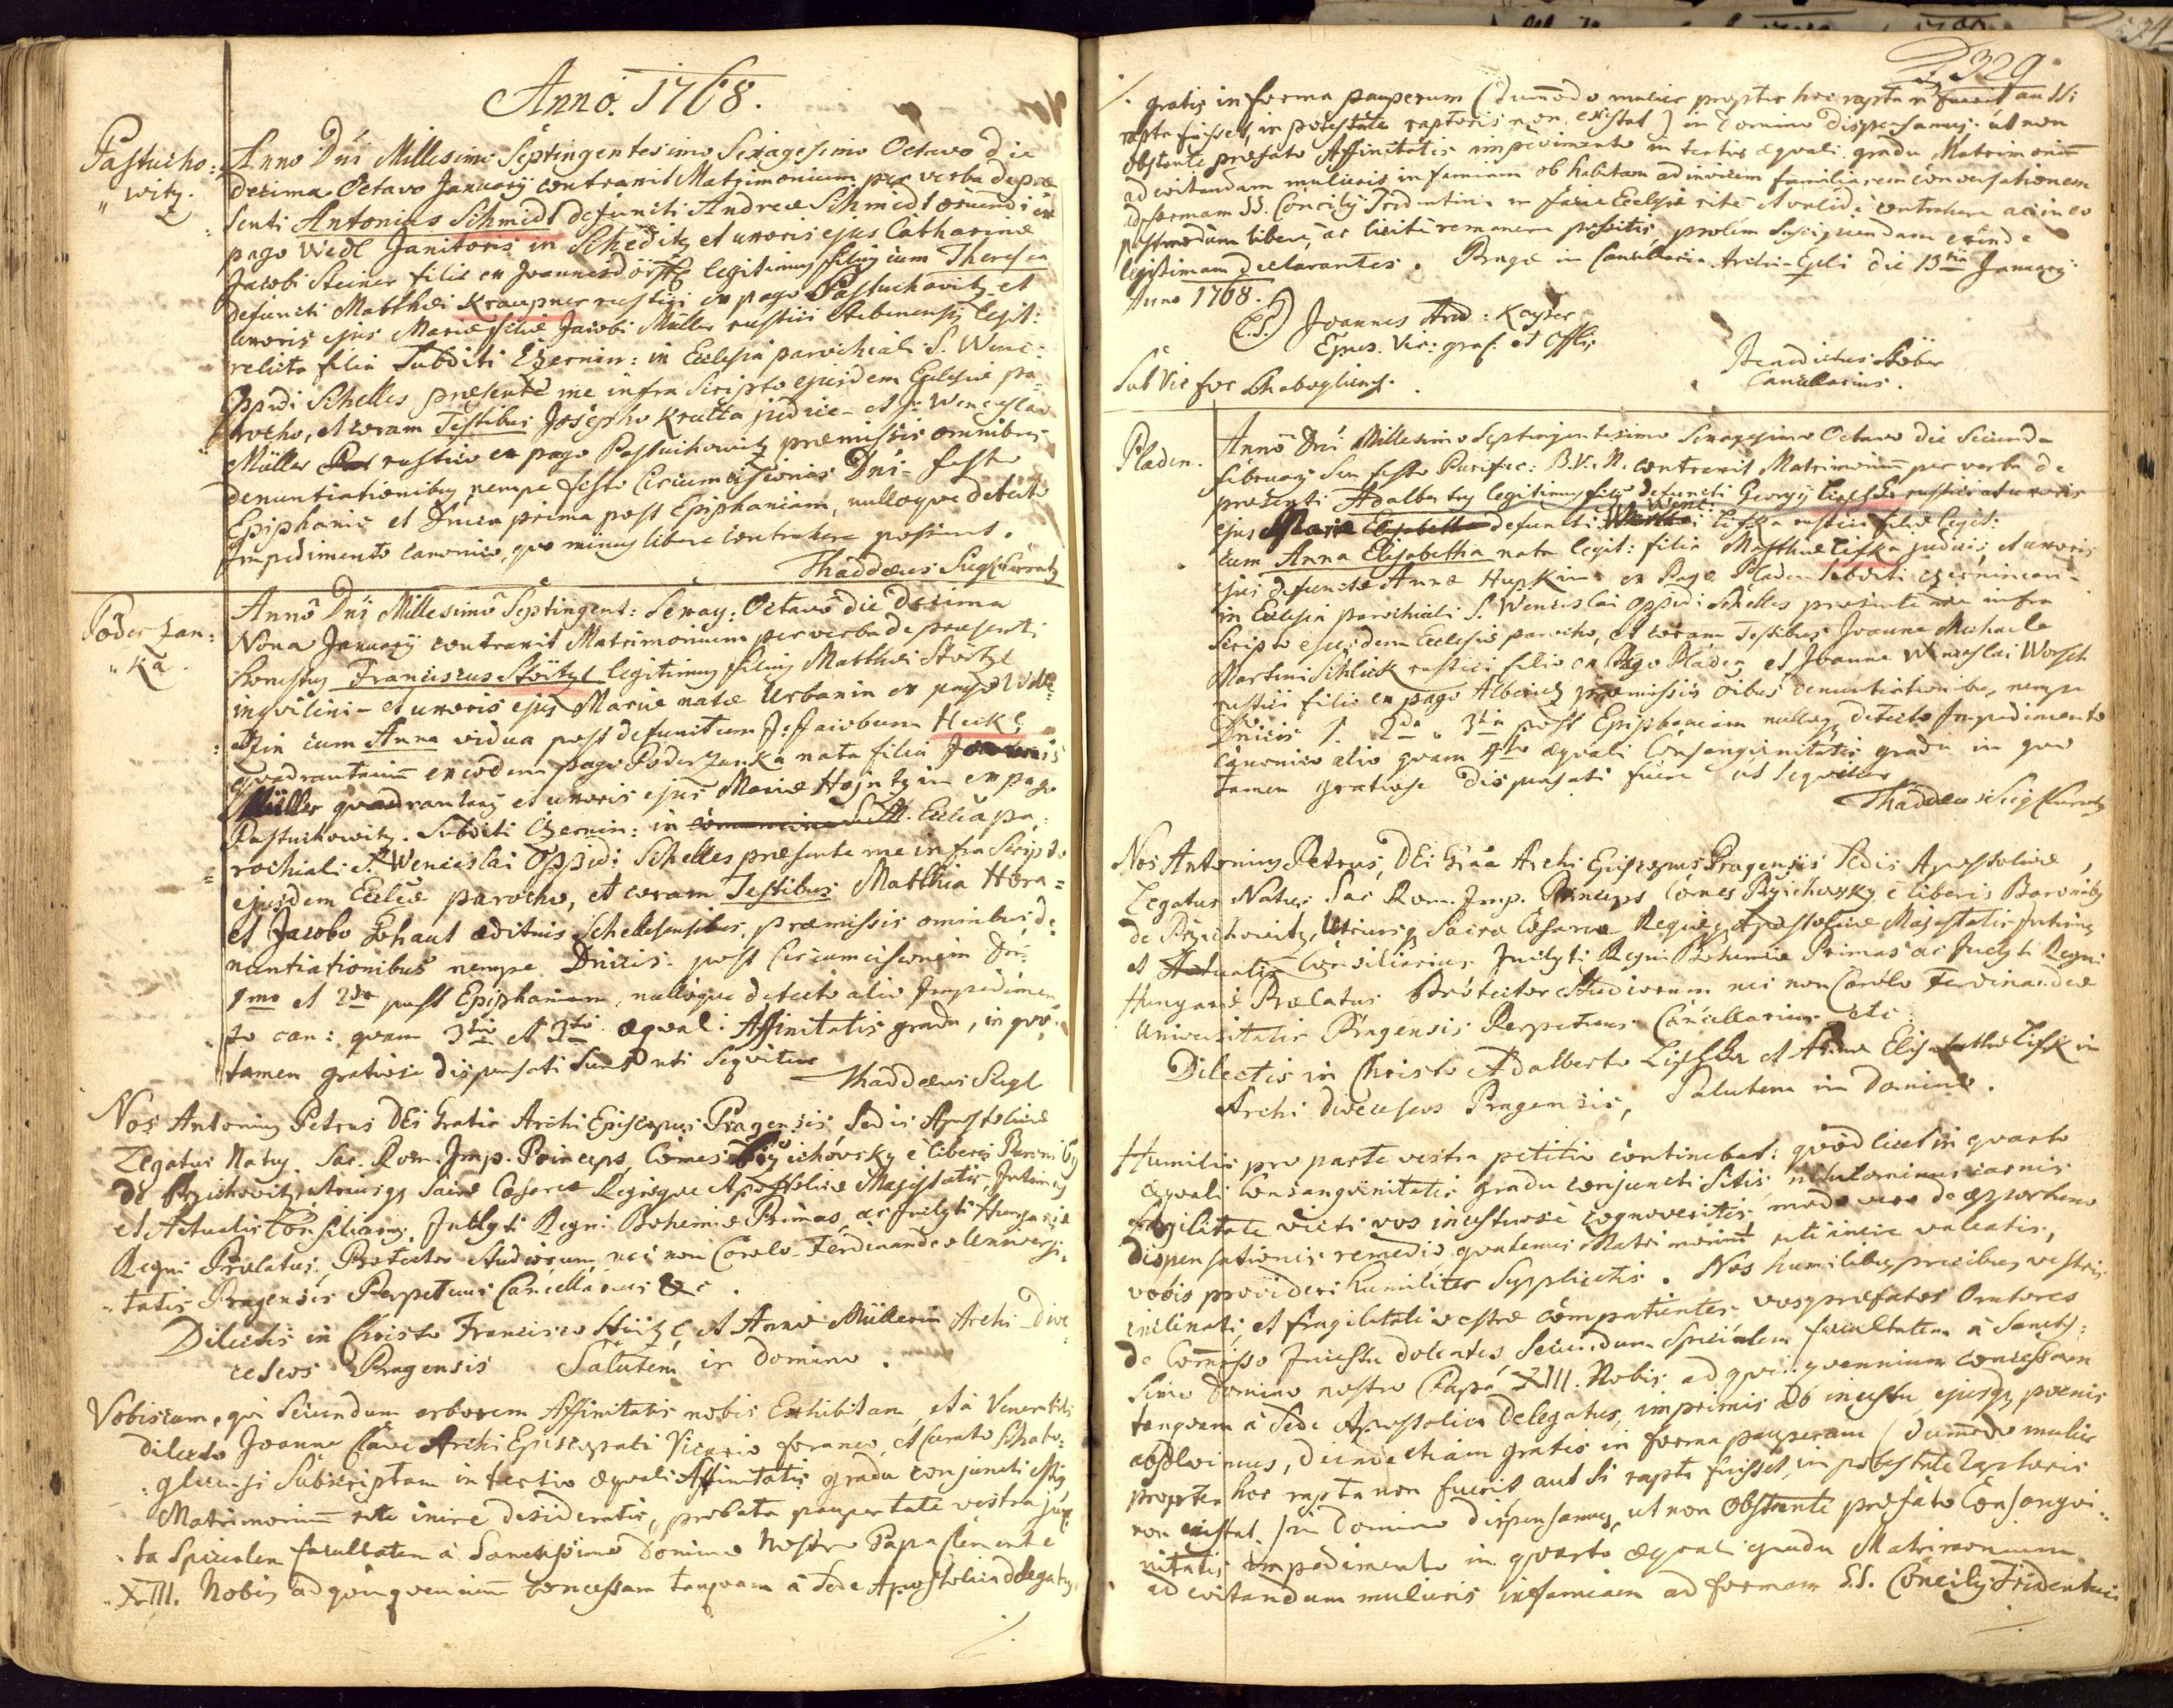 Anno. 1768.
Pastucho:
" witz.
Anno Dni Millesimo Septingentesimo Sexagesimo Octavo die
decima Octavo January contraxit Matrimonium per verba de præ
senti Antonius Schmidt defuncti Andreæ Schmidt oriundi ex
pago Wedl Janitoris in Scheditz et uxoris ejus Catharinæ
Jacobi Steiner filiæ ex Joannesdörffl legitimus filius cum Theresia
defuncti Matthæi Kraupner rustici ex pago Pastuchovitz et
uxoris ejus Mariæ filiæ Jacobi Müller rustici Stebenensis legit:
relicta filia Subditi Czernin: in Ecclesia parochiali S. Wenc:
Oppidi Schelles præsente me infra Scripto ejusdem Ecclesiæ pa=
rocho, et coram Testibus Josepho Kratta judice et Wenceslao
Müller rustico ex pago Pastuchowitz præmissis omnibus
denuntiationibus nempe festo Circumcisionis Dni festo
Epiphaniæ et Dnica prima post Epiphaniam, nulloque detecto
Impedimento canonico, quo minus libere contrahere possent.
Thaddæus Sigl Curatus
Poderzan:
" ka.
Anno Dni Millesimo Septingent: Sexag: Octavo die decima
Nona January contraxit Matrimonium per verba de præsenti
honestus Franciscus Stöitzl legitimus filius Matthæi Störtzl
inqvilini et uxoris ejus Mariæ natæ Urbanin ex pago
cum Anna vidua post defunctum J: Jacobum Heikl
qvadrantarium ex eodem pago Poderzanka nata filia Joannis
Müller qvadrantary et uxoris ejus Mariæ Hajntzin ex pago
Pastuchowitz. Subditi Czernin: in Ecclia pa:
rochiali S. Wenceslai Oppidi Schelles præsente me infra Scripto
ejusdem Eccliæ parocho, et coram Testibus Matthia Hora=
et Jacobo Gehaut ædituis Schellesensibus, præmissis omnibus de
nuntiationibus nempe Dnicis post Circumcisionem Dni
1mo et 2do post Epiphaniam, nulloque detecto alio Impedimen
to can: quam 3tio et 3tio æquali Affinitatis gradu, in quo
tamen gratiose dispensati Sunt uti Sequitur
Thaddæus Sigl
Nos Antonius Petrus DEi Gratia Archi Episcopus Pragensis, Sedis Apostolicæ
Legatus Natus. Sac. Rom. Imp. Princeps, Comes Przichowsky è liberis Baronibus
de Przichowitz, utriusqz Sacræ Cæsareæ Regiæque Apostolicæ Majestatis Intimus
et Actualis Consiliarius. Inclyti Regni Bohemiæ Primas, ac Inclyti Hungariæ
Regni Prælatus, Protector Studiorum, nec non Carolo Ferdinandeæ Universi:
tatis Pragensis Perpetuus Cancellarius &c.
Dilectis in Christo Francisco Stöitzl, et Annæ Müllerin Archi Diœ
ceseos Pragensis Salutem in Domino.
Vobiscum, qui Secundum arborem Affinitatis nobis Exhibitam, et à Venerabili
dilecto Joanne Clave Archi Episcopali Vicario foraneo, et Curato Schabo:
gluensi Subscriptam in tertio æquali Affinitatis gradu conjuncti estis
Matrimonium rite inire desideratis, probata paupertate vestra jux:
ta Specialem facultatem à Sanctissimo Domino Nostro Papa Clemente
XIII. Nobis ad quinquennium concessam tanquam à Sede Apostolica delegatus,
329
gratis in forma pauperum (dummodo mulier propter hoc rapta non fuerit aut si
rapta fuisset, in potestate raptoris non existat) in Domino dispensamus: ut non
obstante præfato Affinitatis impedimento in tertio æquali gradu Matrimonium
ad evitandam mulieris infamiam ob habitam ad invicem familiarem conversationem
ad formam SS. Concily Tridentini in facie Ecclesiæ rite et valide contrahere ac in eo
postmodum libere, ac licite remanere possitis, prolem suscipiendam exinde
legitimam declarantes. Pragæ in Cancellaria Archi-Eppli die 13tia January
Anno 1768.
(L.S.) Joannes And: Kayser
Eppus. Vic: gral: et Offlis
Sub Vic for Schaboglinens.
Benedictus Stöber
Cancellarius.
Pladen.
Anno Dni Millesimo Septingentesimo Sexagesimo Octavo die Secunda
february Seu festo Purific: B.V.M. contraxit Matrimonium per verba de
præsenti Adalbertus legitimus filius defuncti Georgy Lischka rustici et uxoris
ejus Mariæ Elisabetha defuncti Wenc: Lifka rustici filiæ legit:
cum Anna Elisabetha nata legit: filia Matthiæ Lifka judicis, et uxoris
ejus defunctæ Annæ Hupkin ex Pago Pladen Subditi czerninean
in Ecclesia parochiali S. Wenceslai Oppidi Schelles præsente me infra
Scripto ejusdem Ecclesiæ parocho, et coram Testibus Joanne Michaele
Martini Schlick rustici filio ex Pago Pladen et Joanne Wenceslai Worsch
rustici filio ex pago Alberitz præmissis oibus denuntiationibus, nempe
Dnicis 1. 2da. 3tia post Epiphaniam nulloqz detecto Impedimento
canonico alio quam 4to æquali Consangvinitatis gradu in quo
tamen gratiose dispensati fuere ut Seqvitur
Thaddæus Sigl Curatus
Nos Antonius Petrus, DEi Graa Archi Episcopus Pragensis Sedis Apostolicæ,
Legatus Natus Sac Rom. Imp. Princeps Comes Przichowsky è liberis Baronibus
de Przichowitz, Utriusqz Sacræ Cæsareæ Regiæqz Apostolicæ Majestatis Intimus
et Actualis Consiliarius. Inclyti Regni Bohemiæ Primas ac Inclyti Regni
Hungariæ Prælatus Protector Studiorum nec non Carolo Ferdinandeæ
Universitatis Pragensis Perpetuus Cancellarius etc.
Dilectis in Christo Adalberto Lischka et Annæ Elisabethæ Lifkin
Archi Diœceseos Pragensis, Salutem in Domino.
Humilis pro parte vestra petitio continebat: quod licet in quarto
æquali Consangvinitatis gradu conjuncti Sitis, nihilominus carnis
fragilitate victi vos incestuose cognoveritis, modo vero de opportuno
dispensationis remedio, quatenus Matrimonium rite inire valeatis,
vobis provideri humiliter Supplicetis. Nos humilibus precibus vestris
inclinati, et fragilitati vestræ compatientes vos præfatos Oratores
de Commisso Incestu dolentes Secundum Specialem facultatem à Sanctis:
simo Domino nostro Papa XIII. Nobis ad quinquennium concessam
tanquam à Sede Apostolica Delegatus, imprimis ab incestu, ejusqz pœnis
absolvimus, deinde etiam gratis in forma pauperum (dummodo mulier
propter hoc rapta non fuerit aut si rapta fuisset, in potestate raptoris
non existat) in Domino dispensamus, ut non Obstante præfato Consangvi:
nitatis impedimento in quarto æquali gradu Matrimonium
ad evitandam mulieris infamiam ad formam S.S. Concily Tridentini